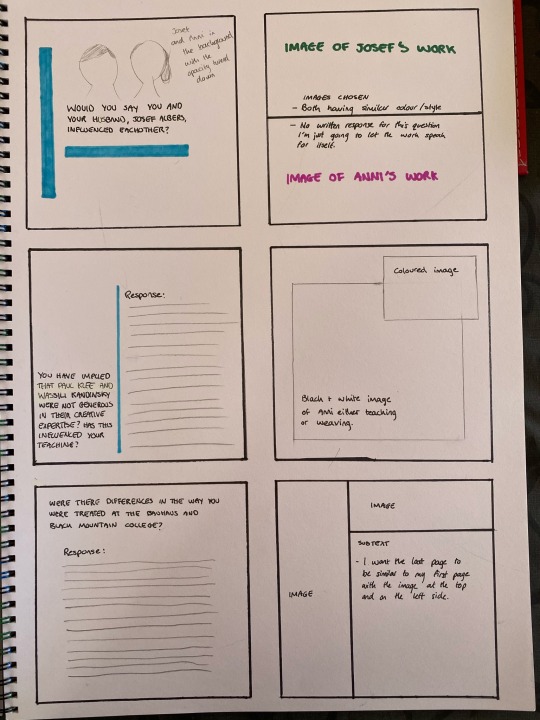 Josef
and Anni in
the background
with the
opacity turned
down
WOULD YOU SAY YOU AND
YOUR HUSBAND, JOSEF ALBERS,
INFLUENCED EACHOTHER?
IMAGE OF JOSEF'S WORK
IMAGES CHOSEN
- Both having similar colour/style
- No written response for this question
I'm just going to let the work speak
for itself.
IMAGE OF ANNI'S WORK
Response:
YOU HAVE IMPLIED
THAT PAUL KLEE AND
WASSILI KANDINSKY
WERE NOT GENEROUS
IN THEIR CREATIVE
EXPERTISE? HAS THIS
INFLUENCED YOUR
TEACHING?
Coloured image
Black + white image
of Anni either teaching
or weaving.
WERE THERE DIFFERENCES IN THE WAY YOU
WERE TREATED AT THE BAUHAUS AND
BLACK MOUNTAIN COLLEGE?
Response:
IMAGE
IMAGE
SUBTEXT
- I want the last page to
be similar to my first page
with the image at the top
and on the left side.